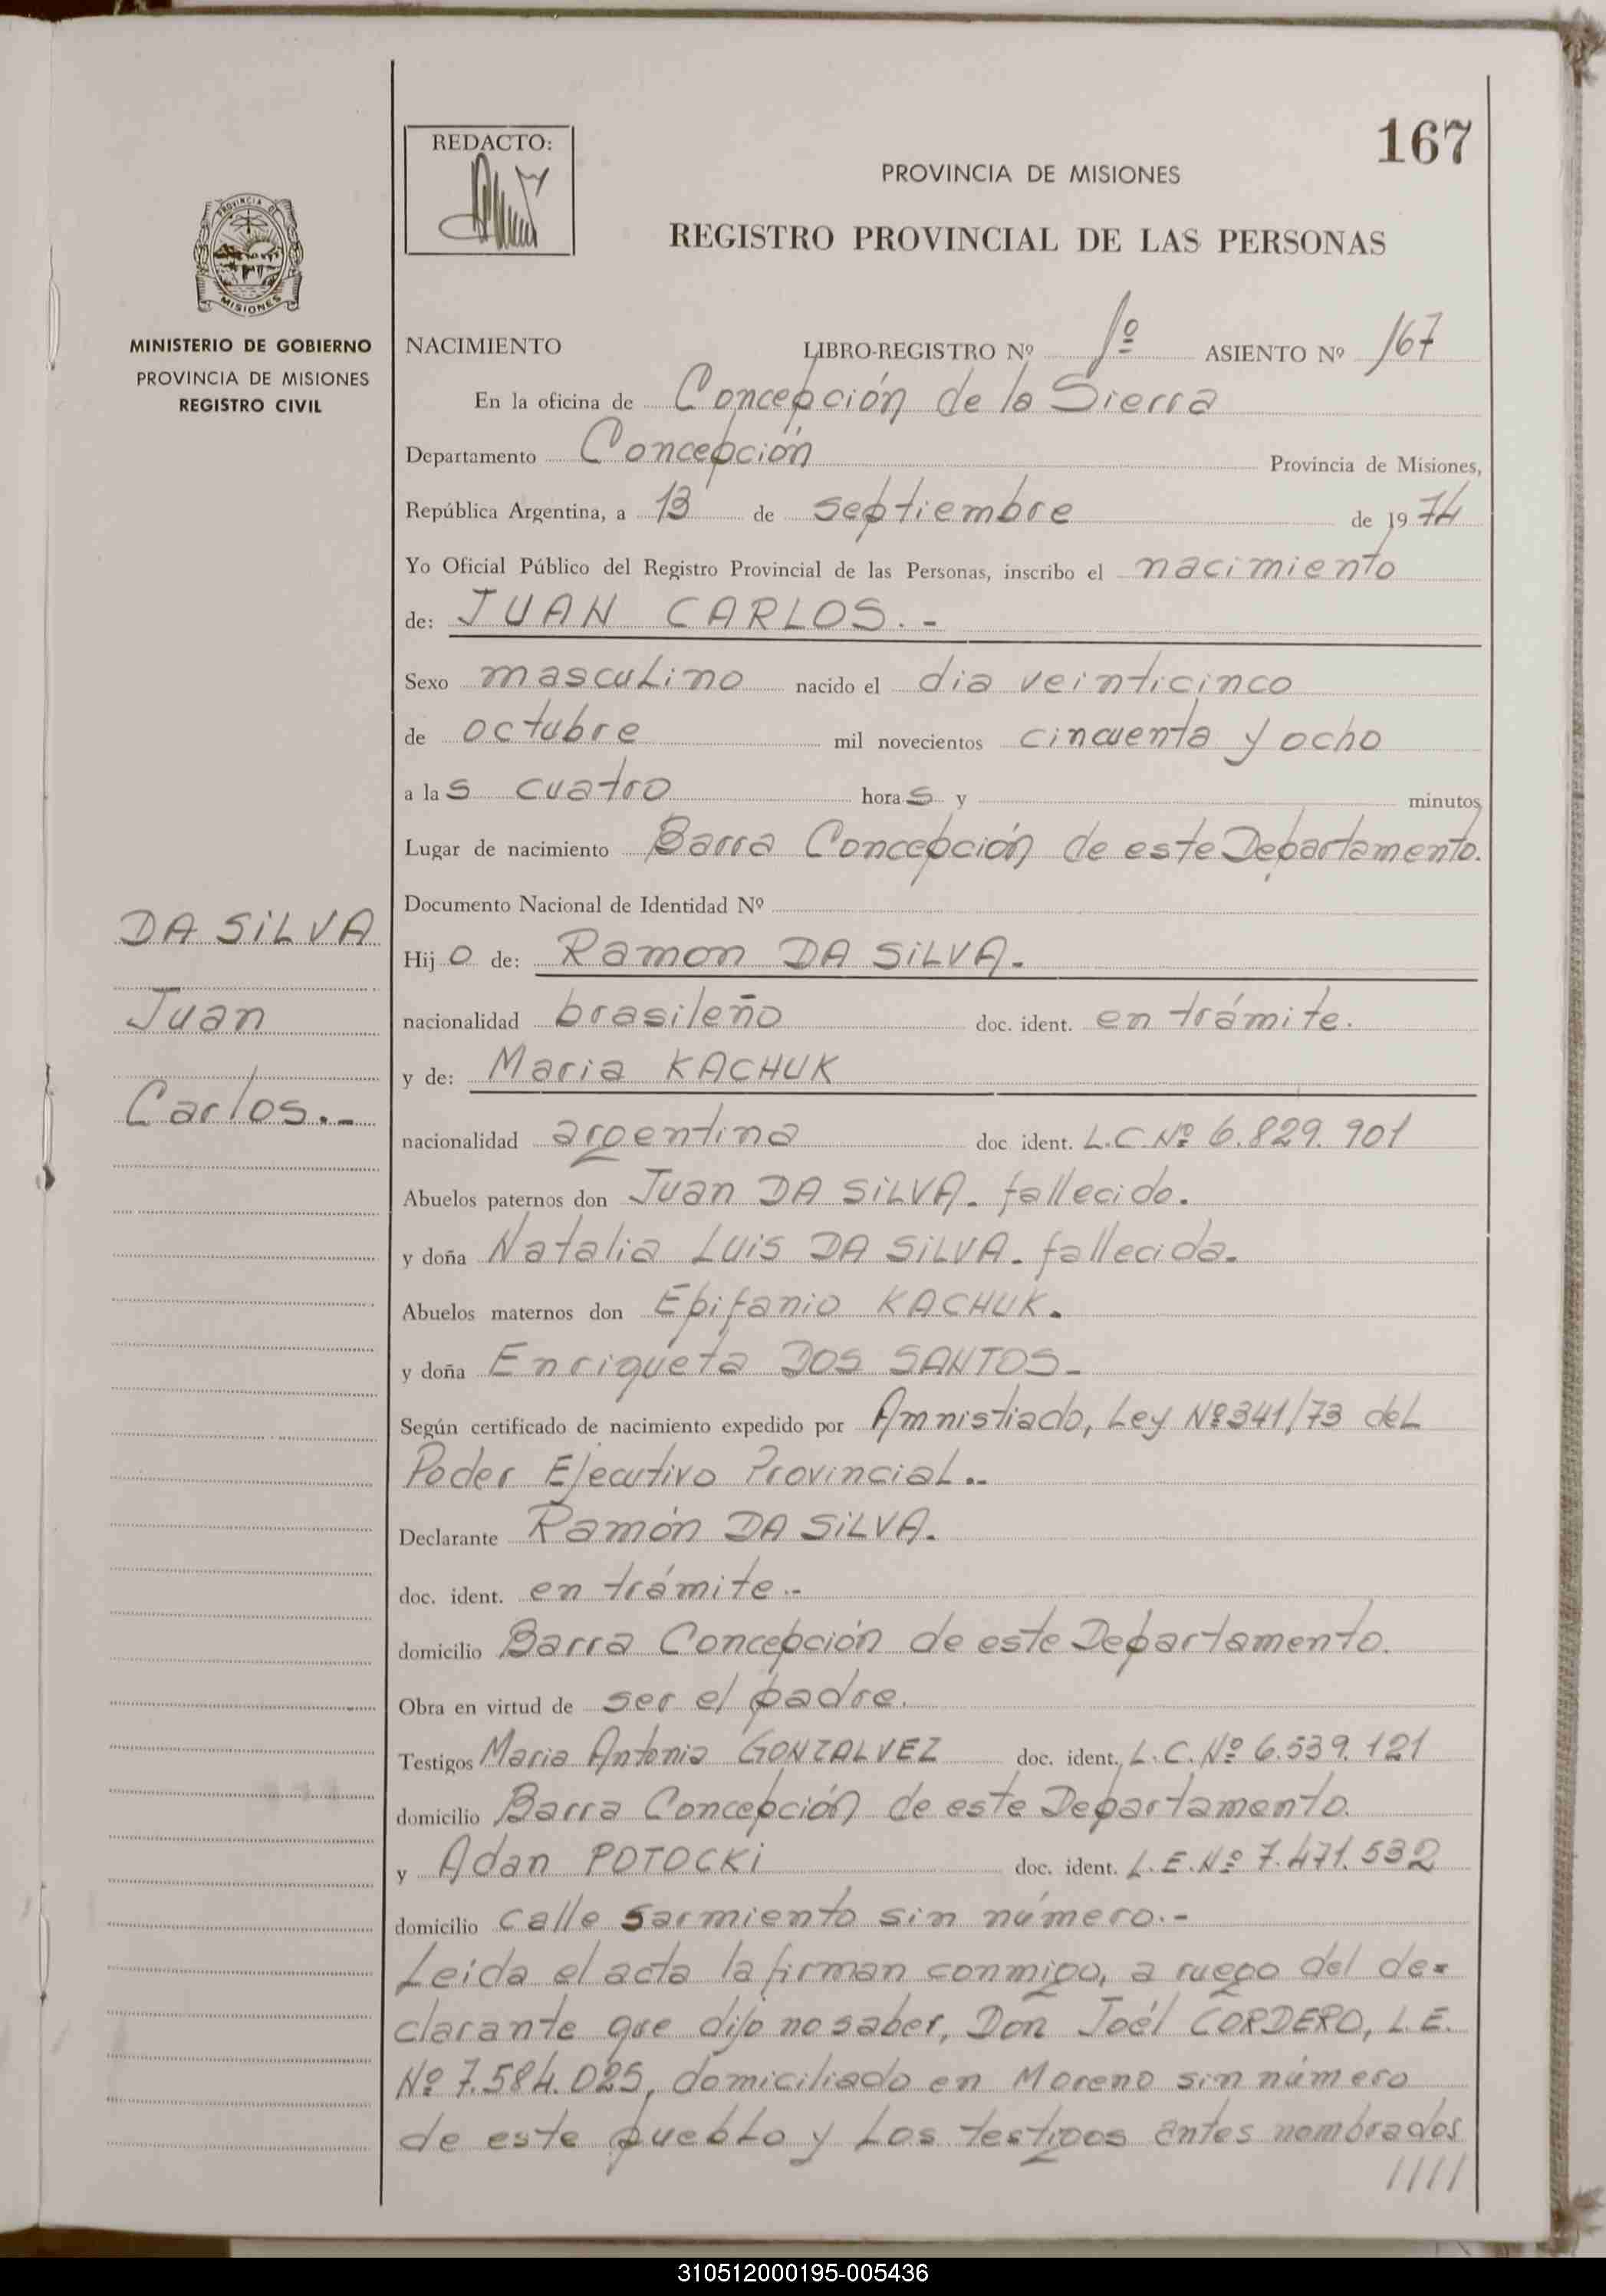 167
REDACTO:
PROVINCIA DE MISIONES
REGISTRO PROVINCIAL DE LAS PERSONAS
PROVINCIA DE
MISIONES
MINISTERIO DE GOBIERNO
PROVINCIA DE MISIONES
REGISTRO CIVIL
NACIMIENTO LIBRO-REGISTRO Nº 1º ASIENTO Nº 167
En la oficina de Concepción de la Sierra
Departamento Concepción Provincia de Misiones,
República Argentina, a 13 de septiembre de 1974
Yo Oficial Público del Registro Provincial de las Personas, inscribo el nacimiento
de: JUAN CARLOS.-
Sexo masculino nacido el dia veinticinco
de octubre mil novecientos cincuenta y ocho
a las cuatro horas y minutos
Lugar de nacimiento Barra Concepción de este Departamento.
Documento Nacional de Identidad Nº
DA SiLVA
Juan
Carlos.-
Hijo de: Ramon DA SiLVA.-
nacionalidad brasileño doc. ident. en trámite.
y de: Maria KACHUK
nacionalidad argentina doc. ident. L.C.Nº 6.829.901
Abuelos paternos don Juan DA SiLVA.- fallecido.
y doña Natalia LUIS DA SiLVA.- fallecida.-
Abuelos maternos don Epifanio KACHUK.
y doña Enriqueta DOS SANTOS-
Según certificado de nacimiento expedido por Amnistiado, Ley Nº341/73 del
Poder Ejecutivo Provincial..-
Declarante Ramón DA SiLVA.
doc. ident. en trámite.-
domicilio Barra Concepción de este Departamento.
Obra en virtud de ser el padre.
Testigos Maria Antonia GONZALVEZ doc. ident. L.C.Nº 6.539.121
domicilio Barra Concepción de este Departamento.
y Adan POTOCKi doc. ident. L.E.Nº 7.471.532
domicilio calle Sarmiento sin número.-
Leida el acta la firman conmigo, a ruego del de-
clarante que dijo no saber, Don Joél CORDERO, L.E.
Nº 7.584.025, domiciliado en Moreno sin número
de este pueblo y los testigos antes nombrados
////
310512000195-005436